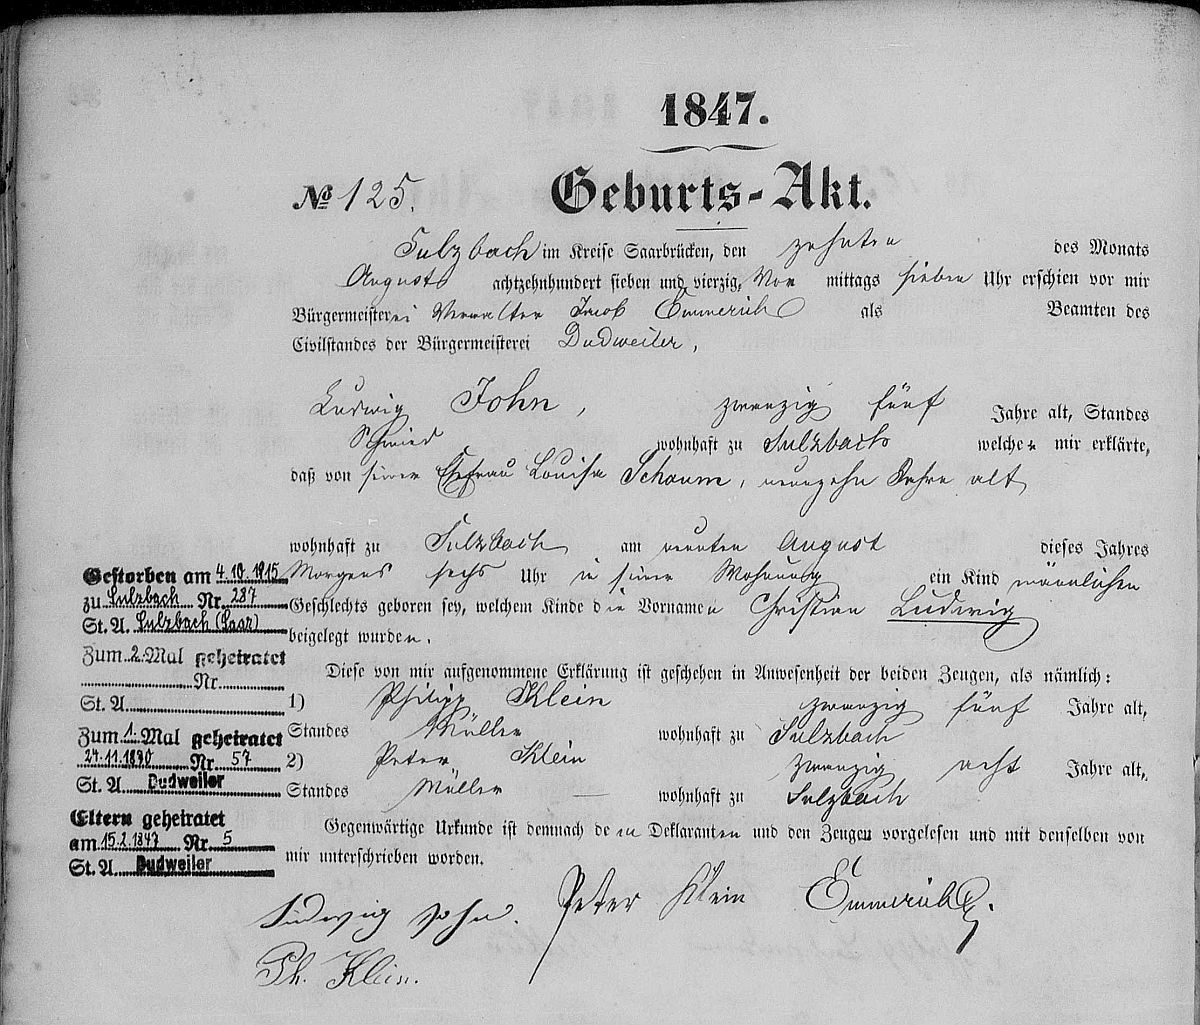 1847.
№ 125.
Geburts-Akt.
Sulzbach im Kreise Saarbrücken, den zehnten des Monats
August achtzehnhundert sieben und vierzig, Vor mittags sieben Uhr erschien vor mir
Bürgermeisterei Verwalter Jacob Emmerich als Beamten des
Civilstandes der Bürgermeisterei Dudweiler,
Ludwig John, zwanzig fünf Jahre alt, Standes
Schmied wohnhaft zu Sulzbach welcher mir erklärte,
daß von seiner Ehefrau Louisa Schaum, neunzehn Jahre alt
wohnhaft zu Sulzbach am neunten August dieses Jahres
Morgens sechs Uhr in seiner Wohnung ein Kind männlichen
Geschlechts geboren sey, welchem Kinde die Vornamen Christian Ludwig
beigelegt wurden.
Diese von mir aufgenommene Erklärung ist geschehen in Anwesenheit der beiden Zeugen, als nämlich:
1) Philipp Klein zwanzig fünf Jahre alt,
Standes Müller wohnhaft zu Sulzbach
2) Peter Klein zwanzig acht Jahre alt,
Standes Müller — wohnhaft zu Sulzbach
Gegenwärtige Urkunde ist demnach dem Deklaranten und den Zeugen vorgelesen und mit denselben von
mir unterschrieben worden.
Ludwig John. Peter Klein Emmerich
Ph. Klein.
Gestorben am 4.10.1915
zu Sulzbach Nr. 287
St. A. Sulzbach (Saar)
Zum 2. Mal geheiratet
Nr.
St. A.
Zum 1. Mal geheiratet
24.11.1870 Nr. 57
St. A. Dudweiler
Eltern geheiratet
am 15.2.1847 Nr. 5
St. A. Dudweiler